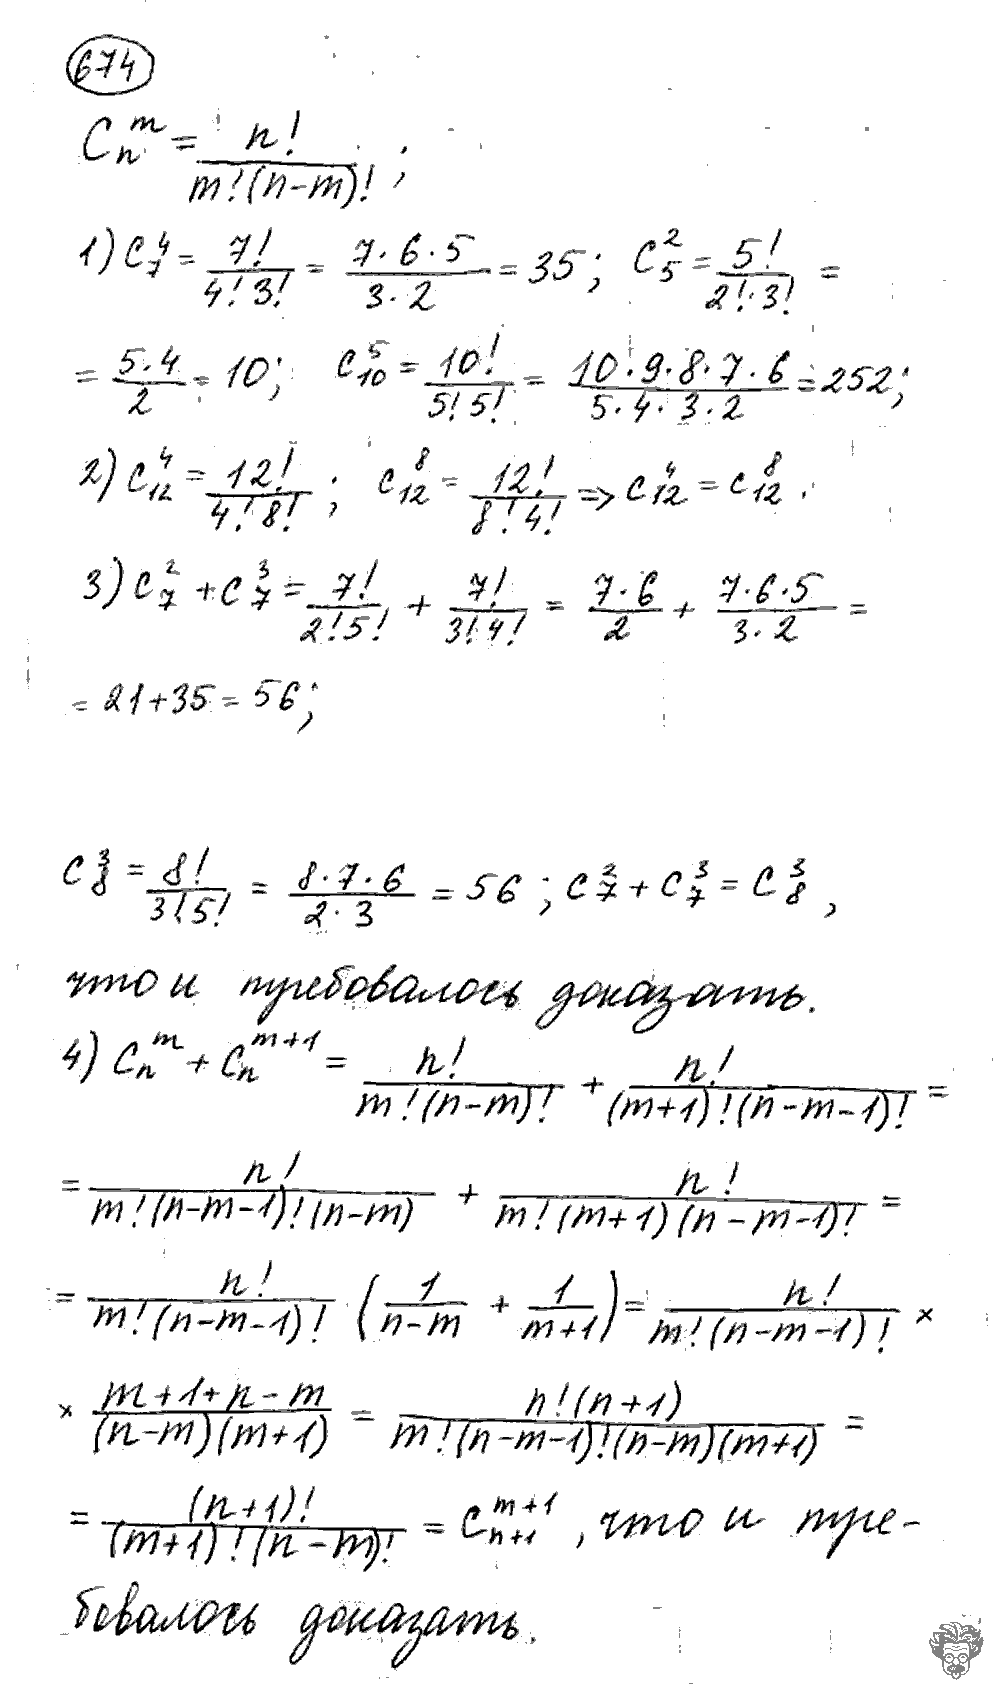 674
C_n^m = n! / (m!(n-m)!) ;
1) C_7^4 = 7! / (4! 3!) = (7·6·5) / (3·2) = 35; C_5^2 = 5! / (2!·3!) =
= (5·4) / 2 = 10; C_10^5 = 10! / (5! 5!) = (10·9·8·7·6) / (5·4·3·2) = 252;
2) C_12^4 = 12! / (4! 8!) ; C_12^8 = 12! / (8! 4!) => C_12^4 = C_12^8 .
3) C_7^2 + C_7^3 = 7! / (2! 5!) + 7! / (3! 4!) = (7·6) / 2 + (7·6·5) / (3·2) =
= 21+35 = 56;
C_8^3 = 8! / (3! 5!) = (8·7·6) / (2·3) = 56 ; C_7^2 + C_7^3 = C_8^3 ,
что и требовалось доказать.
4) C_n^m + C_n^{m+1} = n! / (m!(n-m)!) + n! / ((m+1)!(n-m-1)!) =
= n! / (m!(n-m-1)!(n-m)) + n! / (m!(m+1)(n-m-1)!) =
= n! / (m!(n-m-1)!) (1/(n-m) + 1/(m+1)) = n! / (m!(n-m-1)!) ×
× (m+1+n-m) / ((n-m)(m+1)) = n!(n+1) / (m!(n-m-1)!(n-m)(m+1)) =
= (n+1)! / ((m+1)!(n-m)!) = C_{n+1}^{m+1} , что и тре-
бовалось доказать.